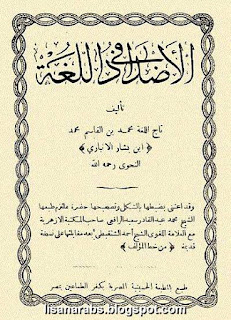 الأضداد في اللغة
تأليف
تاج اللغة محمد بن القاسم محمد
﴿ ابن بشار الانباري ﴾
النحوى رحمه الله
وقد اعتنى بضبطها بالشكل وتصحيحها حضرة ملتزم طبعها
الشيخ محمد عبد القادر سعيد الرافعي صاحب المكتبة الازهرية
مع العلامة اللغوى الشيخ أحمد الشنقيطى بعد مقابلتها على نسخة
قديمة ﴿ من خط المؤلف ﴾
طبع بالمطبعة الحسينية المصرية بكفر الطماعين بمصر
lisanarabs.blogspot.com